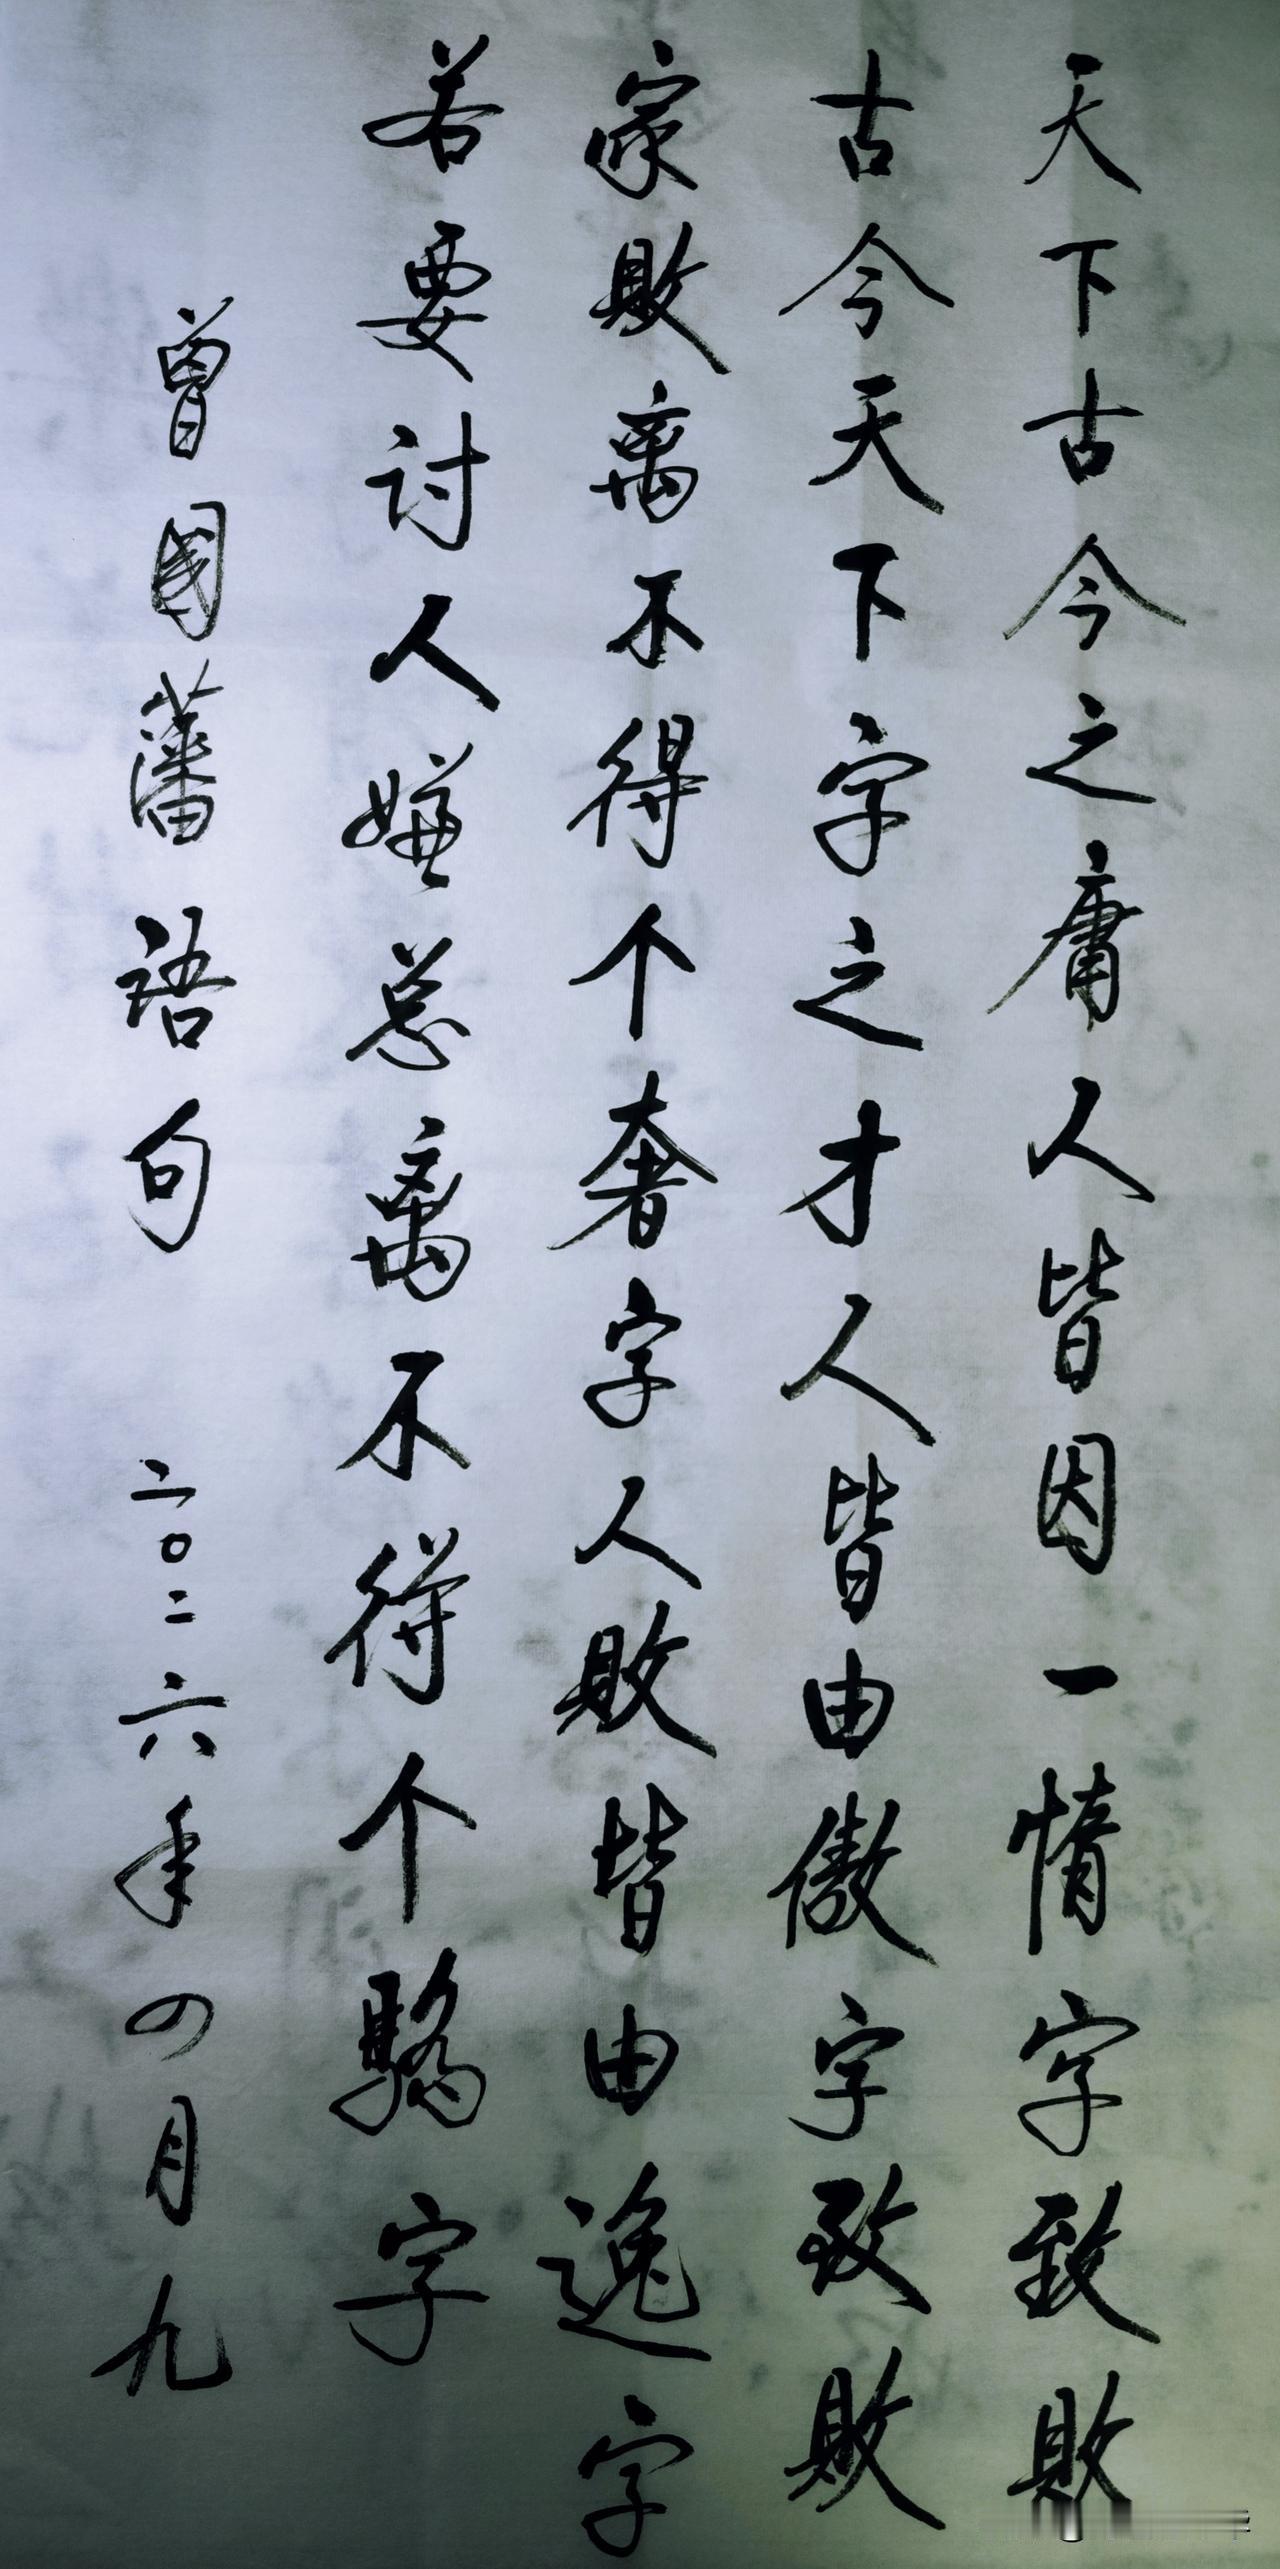 天下古今之庸人皆因一惰字致敗
古今天下字之才人皆由傲字致敗
家敗离不得个奢字人敗皆由逸字
若要讨人嫌总离不得个驕字
曾國藩语句 二〇二六年四月九